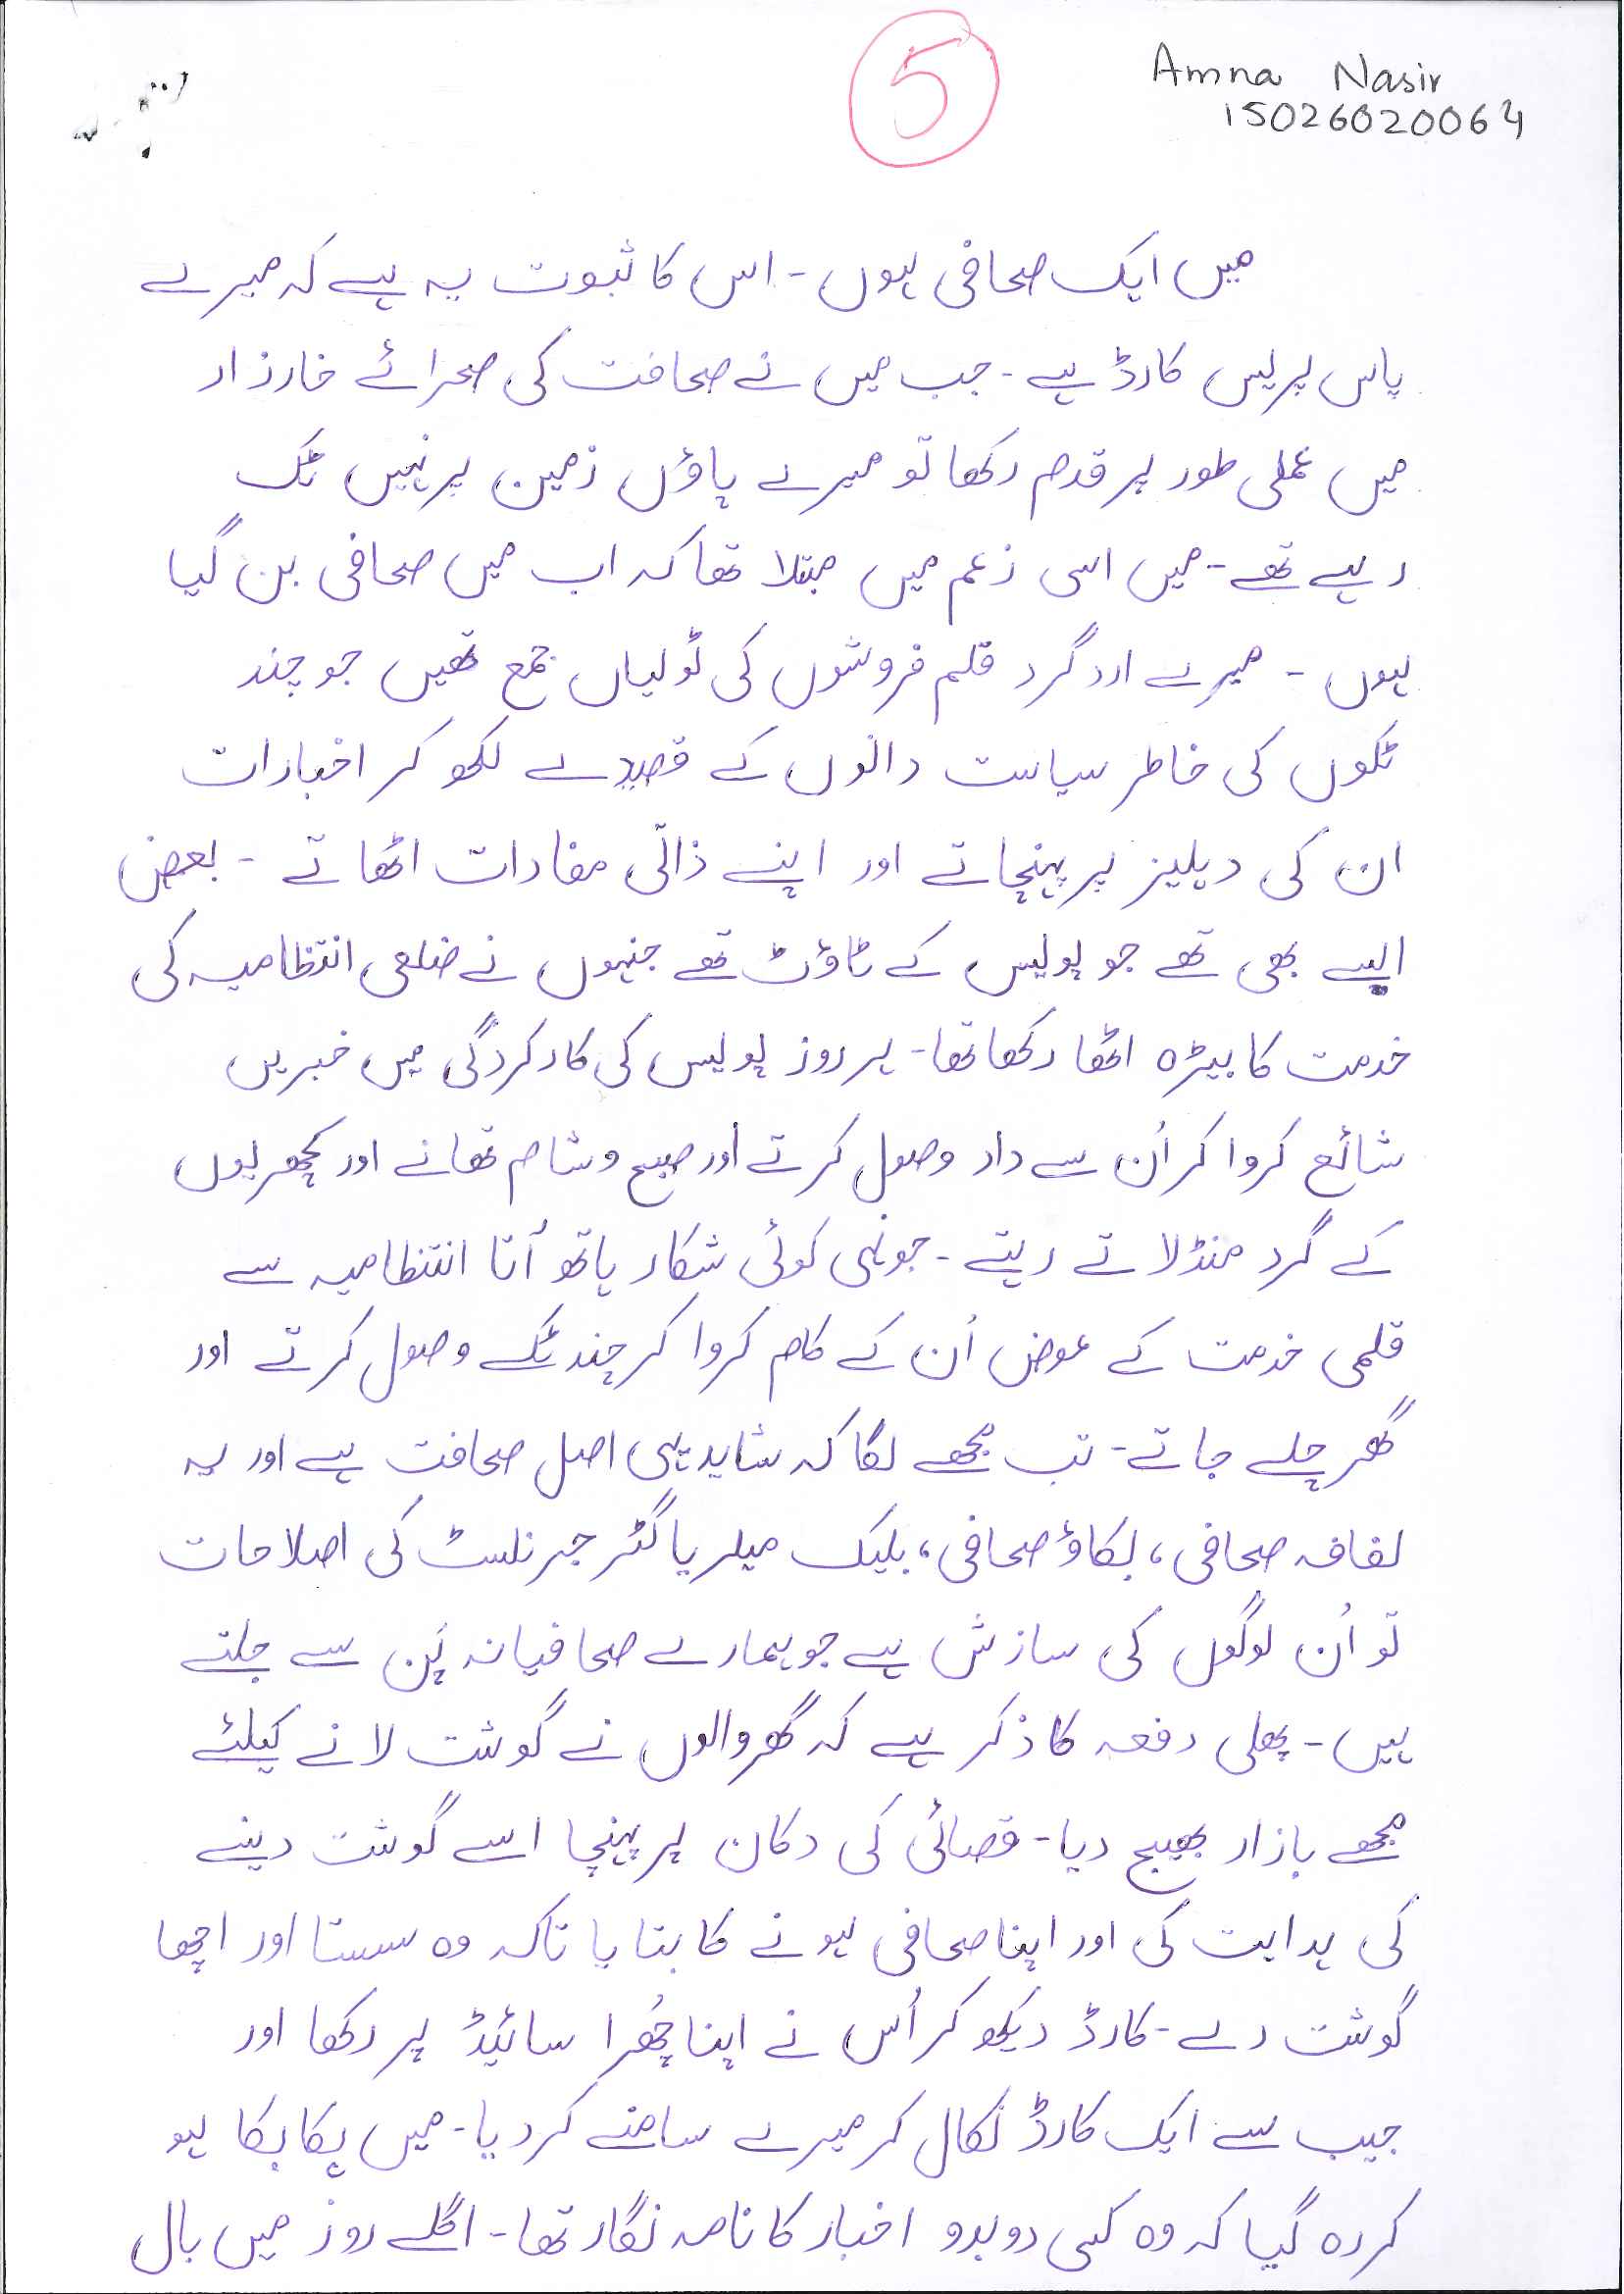 5
Amna Nasir
15026020064
میں ایک صحافی ہوں - اس کا ثبوت یہ ہے کہ میرے
پاس پریس کارڈ ہے - جب میں نے صحافت کی صحرائے خارزار
میں عملی طور پر قدم رکھا تو میرے پاؤں زمین پر نہیں ٹک
رہے تھے - میں اسی زعم میں مبتلا تھا کہ اب میں صحافی بن گیا
ہوں - میرے ارد گرد قلم فروشوں کی ٹولیاں جمع تھیں جو چند
ٹکوں کی خاطر سیاست دانوں کے قصیدے لکھ کر اخبارات
ان کی دہلیز پر پہنچاتے اور اپنے ذاتی مفادات اٹھاتے - بعض
ایسے بھی تھے جو پولیس کے ٹاؤٹ تھے جنہوں نے ضلعی انتظامیہ کی
خدمت کا بیڑہ اٹھا رکھا تھا - ہر روز پولیس کی کارکردگی میں خبریں
شائع کروا کر اُن سے داد وصول کرتے اور صبح و شام تھانے اور کچھریوں
کے گرد منڈلاتے رہتے - جونہی کوئی شکار ہاتھ آتا انتظامیہ سے
قلمی خدمت کے عوض اُن کے کام کروا کر چند ٹکے وصول کرتے اور
گھر چلے جاتے - تب مجھے لگا کہ شاید یہی اصل صحافت ہے اور یہ
لفافہ صحافی، بکاؤ صحافی، بلیک میلر یا گٹر جرنلسٹ کی اصلاحات
تو اُن لوگوں کی سازش ہے جو ہمارے صحافیانہ پَن سے جلتے
ہیں - پچھلی دفعہ کا ذکر ہے کہ گھر والوں نے گوشت لانے کیلئے
مجھے بازار بھیج دیا - قصائی کی دکان پر پہنچا اسے گوشت دینے
کی ہدایت کی اور اپنا صحافی ہونے کا بتایا تاکہ وہ سستا اور اچھا
گوشت دے - کارڈ دیکھ کر اُس نے اپنا چھُرا سائیڈ پر رکھا اور
جیب سے ایک کارڈ نکال کر میرے سامنے کر دیا - میں ہکا بکا ہو
کر رہ گیا کہ وہ کسی دوبدو اخبار کا نامہ نگار تھا - اگلے روز میں بال